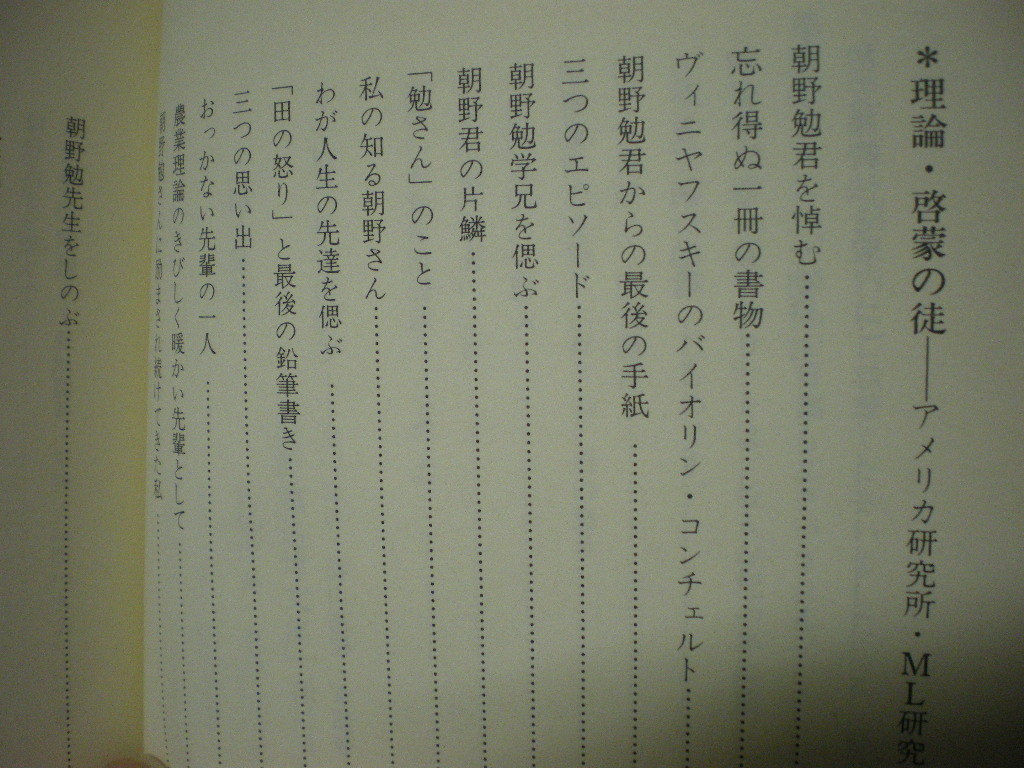 ＊理論・啓蒙の徒――アメリカ研究所・ML研究
朝野勉君を悼む
忘れ得ぬ一冊の書物
ヴィニヤフスキーのバイオリン・コンチェルト
朝野勉君からの最後の手紙
三つのエピソード
朝野勉学兄を偲ぶ
朝野君の片鱗
「勉さん」のこと
私の知る朝野さん
わが人生の先達を偲ぶ
「田の怒り」と最後の鉛筆書き
三つの思い出
おっかない先輩の一人
農業理論のきびしく暖かい先輩として
朝野勉さんに励まされ続けてきた私
朝野勉先生をしのぶ